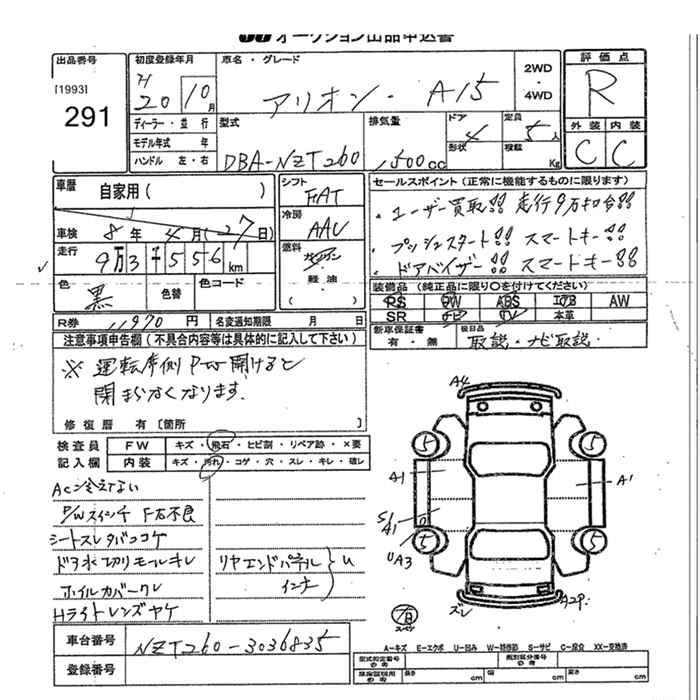 オークション出品申込書
出品番号
[1993]
291
初度登録年月
H
20 10月
ディーラー・並 行
モデル年式 年
ハンドル 左・右
車名・グレード
アリオン・ A15
2WD
・
4WD
型式
DBA-NZT260
排気量
1500cc
ドア
4
定員
5人
形状
積載
Kg
評価点
R
外装 内装
C C
車歴
自家用( )
車検 8年 4月(27日)
走行
9万3千556km
色
黒
色替
色コード
シフト
FAT
冷房
AAC
燃料
ガソリン
・
軽油
・
( )
セールスポイント(正常に機能するものに限ります)
・ユーザー買取!! 走行9万キロ台!!
・プッシュスタート!! スマートキー!!
・ドアバイザー!! スマートキー!!
装備品(純正品に限り○を付けてください)
PS PW ABS エアB AW
SR ナビ TV 本革
新車保証書
有・無
後日品
取説・ナビ取説・
R券 11970円 名変通知期限 月 日
注意事項申告欄(不具合内容等は具体的に記入して下さい)
※ 運転席側P-W開けると
閉まらなくなります.
修復歴 有[箇所 ]
検査員 FW キズ・飛石・ヒビ割・リペア跡・×要
記入欄 内装 キズ・汚れ・コゲ・穴・スレ・キレ・破レ
ACン冷えてない
P/Wスイッチ F右不良
シートスレタバココゲ
ドア水切りモールキレ
ホイルカバークレ
Hライトレンズヤケ
リヤエンドパネル
インナ
U
A4
5 5
A1 A1
S/A1
5 5
UA3
ズレ A29.
B
スペア
車台番号 NZT260-3036835
登録番号
A-キズ E-エクボ U-凹み W-補修跡 S-サビ C-腐食 XX-交換済
型式指定番号
類別区分番号
長さ cm 幅 cm 高さ cm